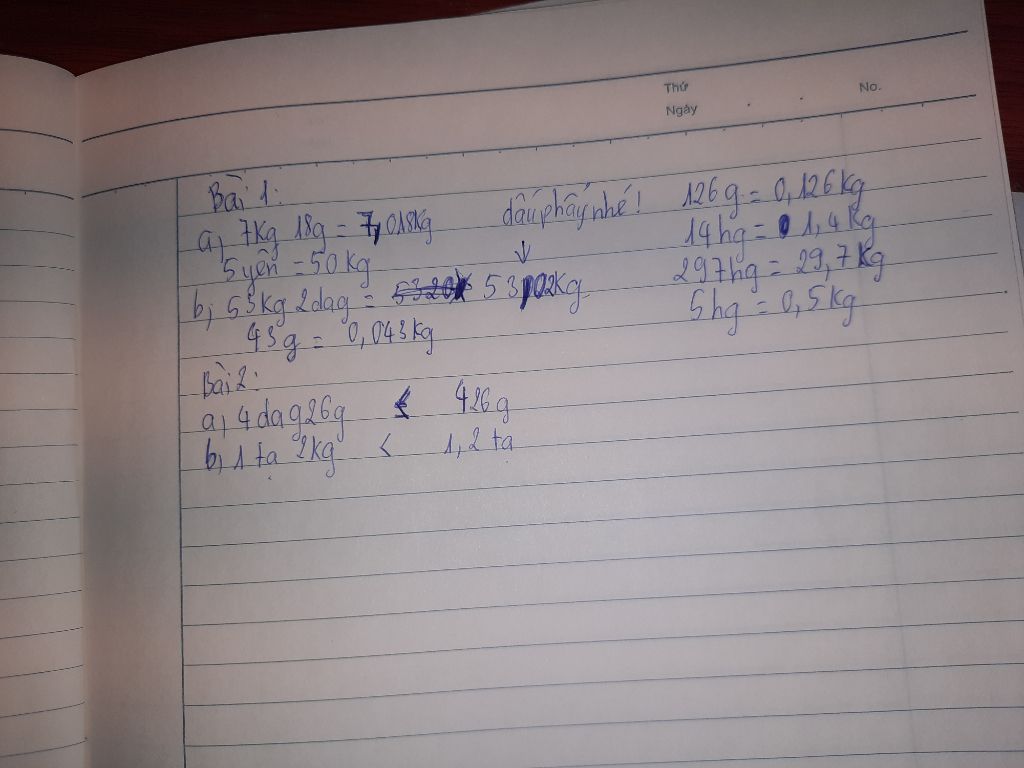 Thứ
Ngày
No.
Bài 1:
a, 7kg 18g = 7,018kg
5 yến = 50 kg
dấu phẩy nhé!
↓
b, 53kg 2dag = 53,02kg
43g = 0,043kg
126g = 0,126kg
14hg = 1,4kg
297hg = 29,7kg
5hg = 0,5kg
Bài 2:
a, 4dag26g < 426g
b, 1 tạ 2kg < 1,2 tạ